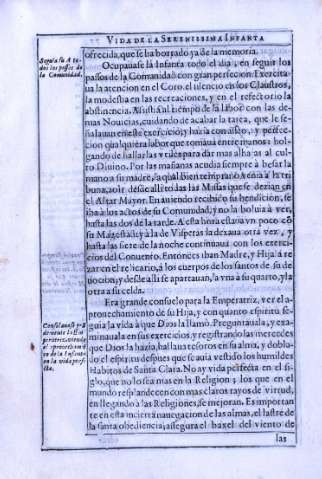 VIDA DE LA SERENISSIMA INFANTA
ofrecida, que se ha borrado ya de la memoria.
Seguia la A todos los passos de la Comunidad.
Ocupauase la Infanta todo el dia, en seguir los
passos de la Comunidad con gran perfeccion. Exercitaua
la atencion en el Coro, el silencio en los Claustros,
la modestia en las recreaciones, y en el refectorio la
abstinencia. Assistia al tiempo de la labor con las demas
Nouicias, cuidando de acabar la tarea, que le señalauan
este exercicio; y hazia con asseo, y perfeccion
qualquiera labor que tomaua entre manos: holgando
de hallarse vtil para dar mas alhajas al culto
Diuino. Por las mañanas acudia siempre à besar la
mano a su madre, la qual bien temprano venia à la tribuna,
à oir desde alli todas las Missas que se dezian en
el Altar Mayor. En auiendo recibido su bendicion, se
iba à los actos de su Comunidad, y no la boluia à ver,
hasta las dos de la tarde. A esta hora estaua vn poco cõ
su Magestad: y à la de Visperas la dexaua otra vez, y
hasta las siete de la noche continuaua con los exercicios
del Conuento. Entonces iban Madre, y Hija à rezar
en el relicario, à los cuerpos de los santos de su deuocion,
y desde alli se apartauan, la vna a su quarto, y la
otra a su celda.
Era grande consuelo para la Emperatriz, ver el aprouechamiento
de su Hija, y con quanto espiritu seguia
la vida à que Dios la llamò. Preguntauala, y examinauala
en sus exercicios, y registrando las mercedes
que Dios la hazia, hallaua tesoros en su alma, y doblado
el espiritu despues que se auia vestido los humildes
Habitos de Santa Clara. No ay vida perfecta en el siglo,
que no lo sea mas en la Religion; y los que en el
mundo resplandecen con mas claros rayos de virtud,
en llegando à las Religiones, se mejoran. Es importante
en esta incierta nauegacion de las almas, el lastre de
la santa obediencia; assegura el baxel del viento de
las